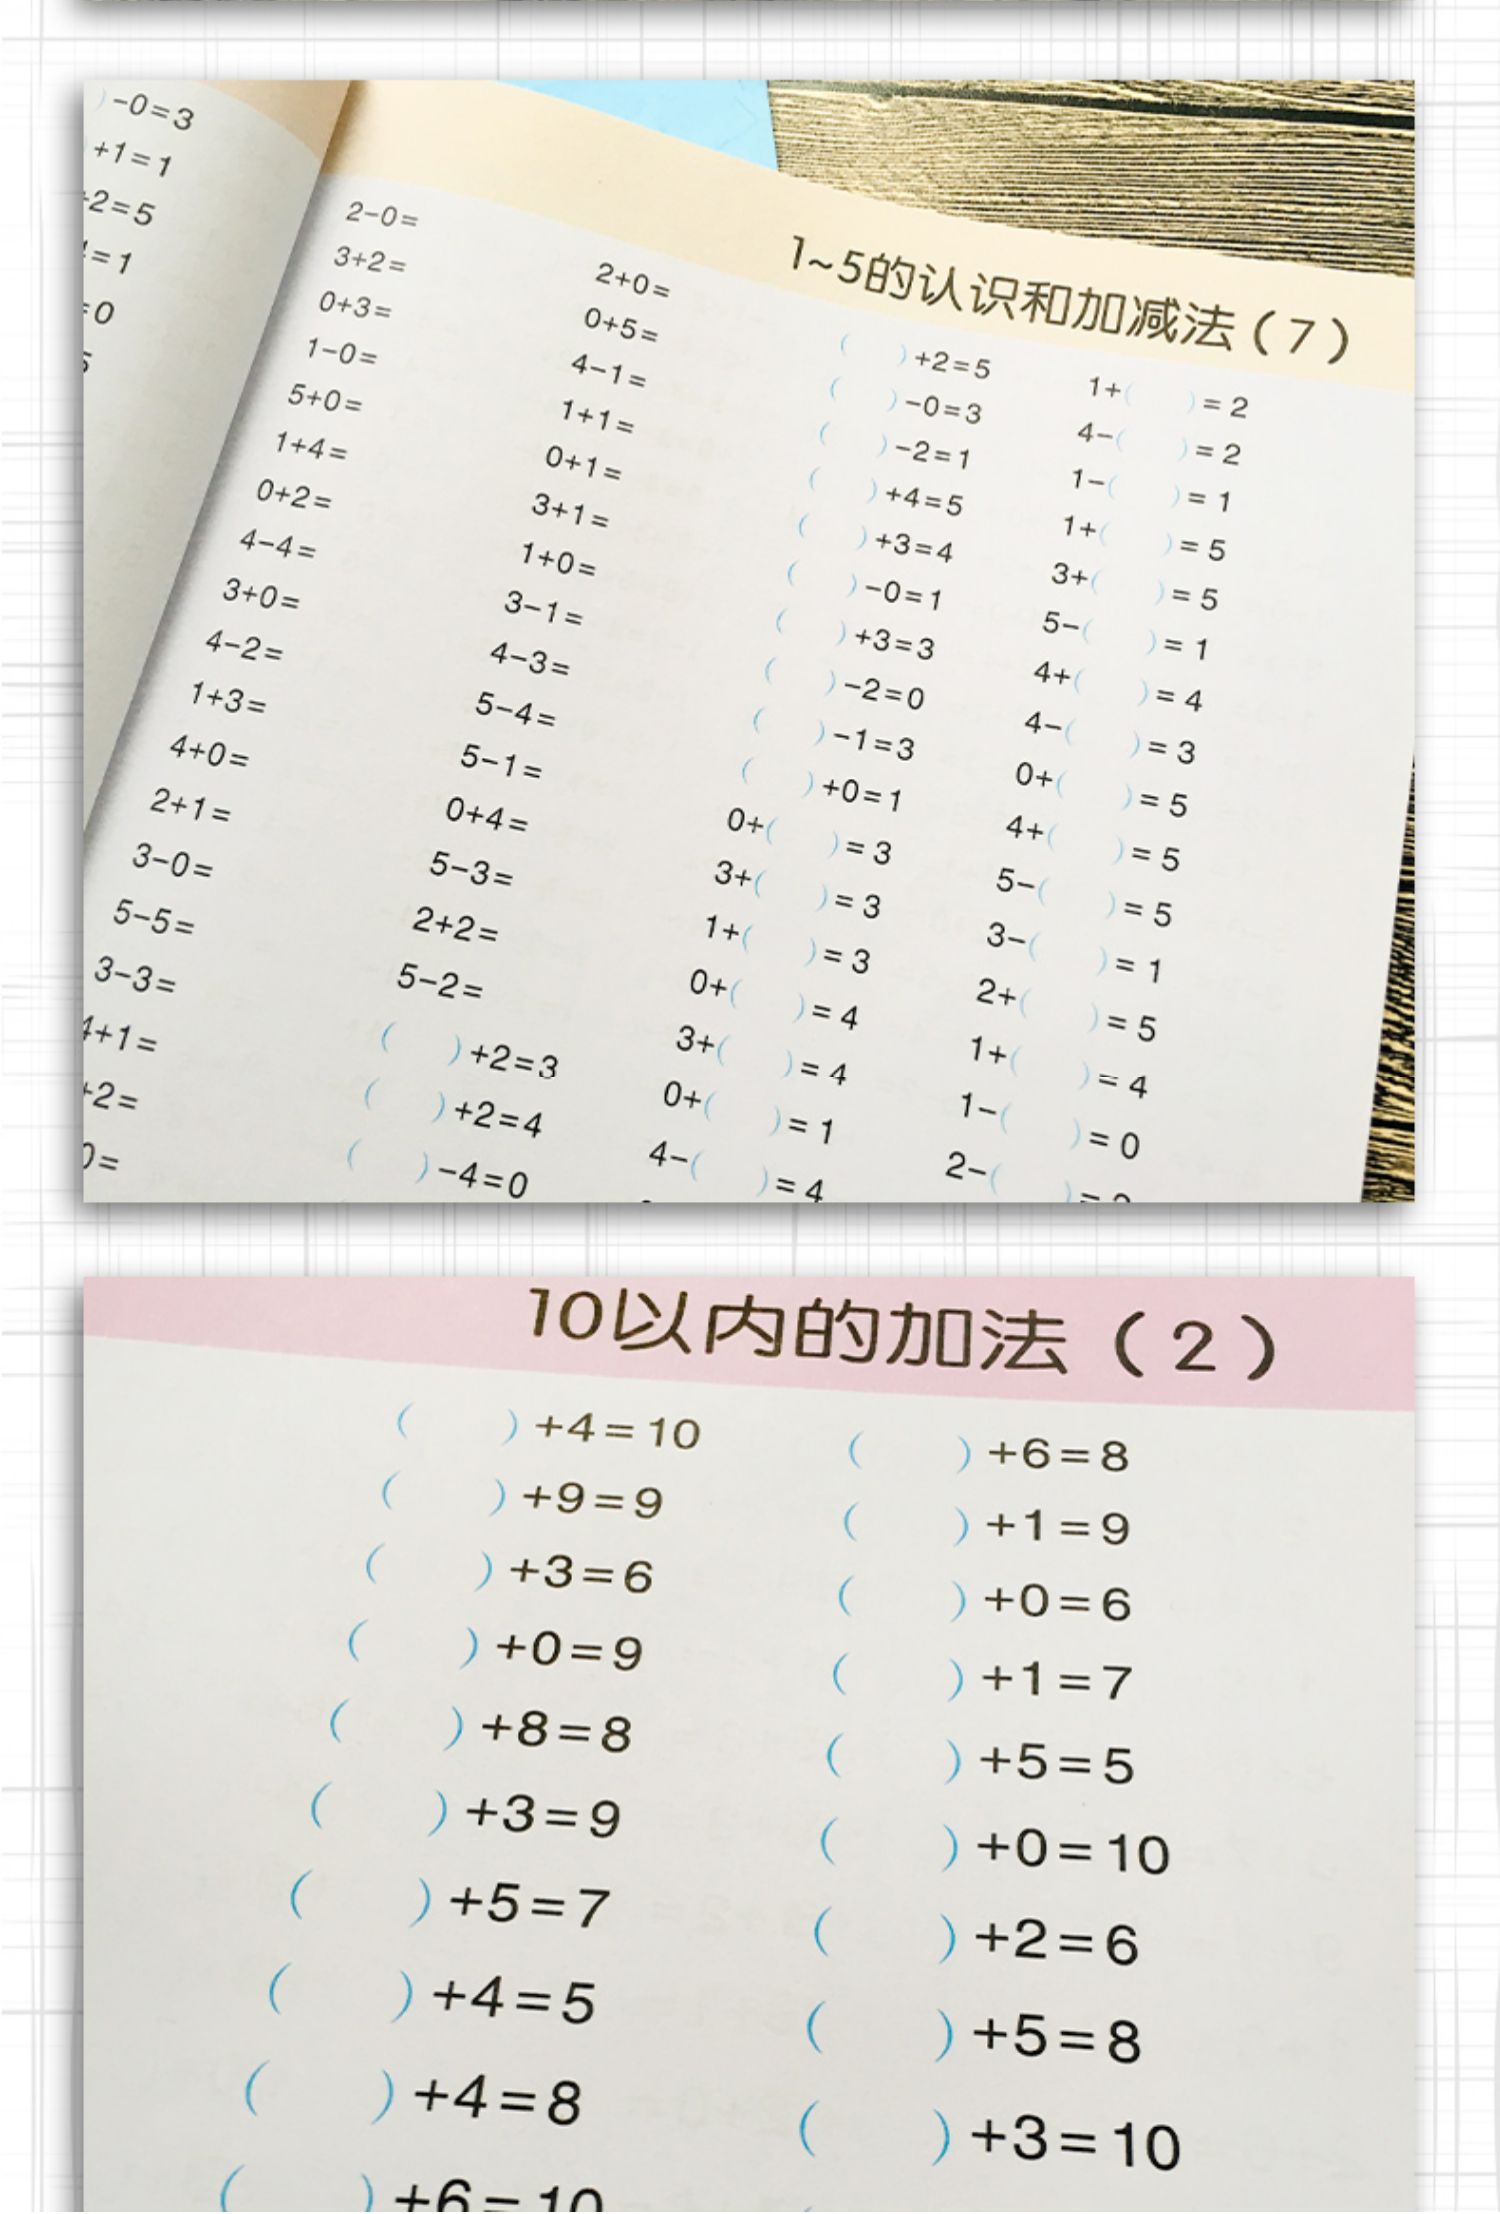 )-0=3
+1=1
2=5
=1
0
1~5的认识和加减法(7)
2-0=
3+2=
0+3=
1-0=
5+0=
1+4=
0+2=
4-4=
3+0=
4-2=
1+3=
4+0=
2+1=
3-0=
5-5=
3-3=
4+1=
+2=
0=
2+0=
0+5=
4-1=
1+1=
0+1=
3+1=
1+0=
3-1=
4-3=
5-4=
5-1=
0+4=
5-3=
2+2=
5-2=
( )+2=3
( )+2=4
( )-4=0
( )+2=5
( )-0=3
( )-2=1
( )+4=5
( )+3=4
( )-0=1
( )+3=3
( )-2=0
( )-1=3
( )+0=1
0+( )=3
3+( )=3
1+( )=3
0+( )=4
3+( )=4
0+( )=1
4-( )=4
1+( )=2
4-( )=2
1-( )=1
1+( )=5
3+( )=5
5-( )=1
4+( )=4
4-( )=3
0+( )=5
4+( )=5
5-( )=5
3-( )=1
2+( )=5
1+( )=4
1-( )=0
2-( )=
10以内的加法(2)
( )+4=10
( )+9=9
( )+3=6
( )+0=9
( )+8=8
( )+3=9
( )+5=7
( )+4=5
( )+4=8
( )+6=10
( )+6=8
( )+1=9
( )+0=6
( )+1=7
( )+5=5
( )+0=10
( )+2=6
( )+5=8
( )+3=10